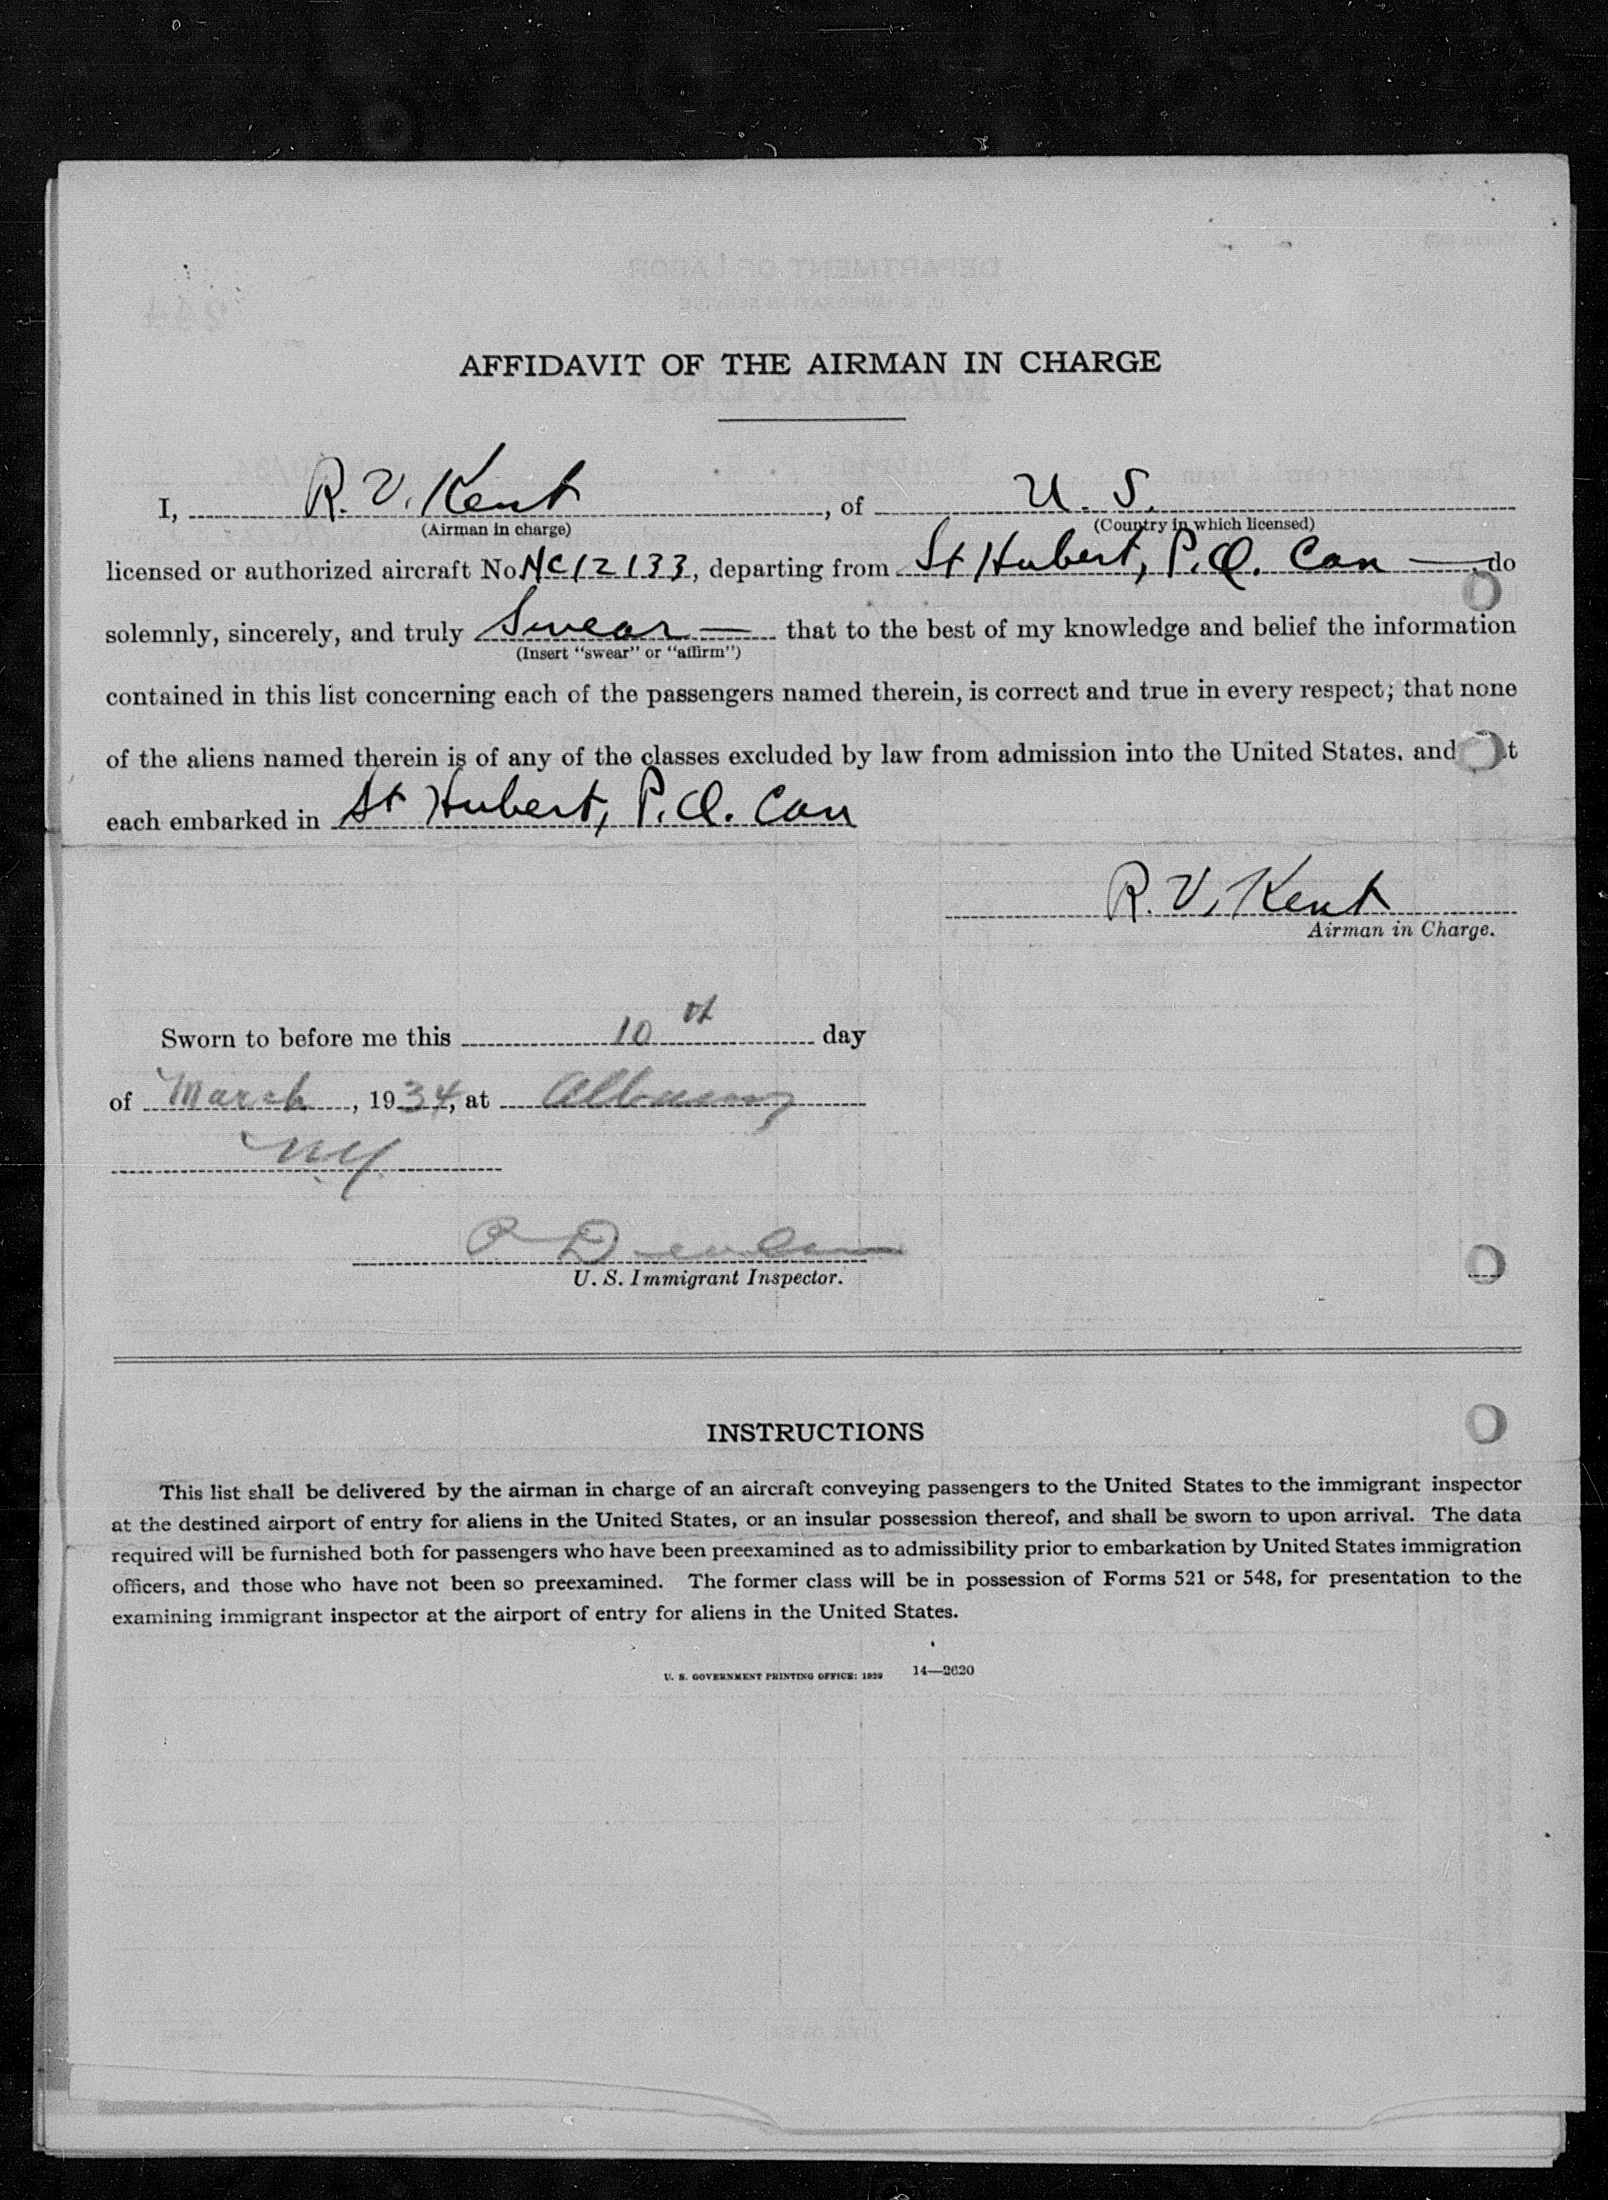 AFFIDAVIT OF THE AIRMAN IN CHARGE
I, R. V. Kent, of U. S.
(Airman in charge) (Country in which licensed)
licensed or authorized aircraft No. NC12133, departing from St Hubert, P.Q. Can —, do
solemnly, sincerely, and truly Swear — that to the best of my knowledge and belief the information
(Insert "swear" or "affirm")
contained in this list concerning each of the passengers named therein, is correct and true in every respect; that none
of the aliens named therein is of any of the classes excluded by law from admission into the United States, and t
each embarked in St Hubert, P.Q. Can
R. V. Kent
Airman in Charge.
Sworn to before me this 10th day
of March, 1934, at Albany
N.Y.
U. S. Immigrant Inspector.
INSTRUCTIONS
This list shall be delivered by the airman in charge of an aircraft conveying passengers to the United States to the immigrant inspector
at the destined airport of entry for aliens in the United States, or an insular possession thereof, and shall be sworn to upon arrival. The data
required will be furnished both for passengers who have been preexamined as to admissibility prior to embarkation by United States immigration
officers, and those who have not been so preexamined. The former class will be in possession of Forms 521 or 548, for presentation to the
examining immigrant inspector at the airport of entry for aliens in the United States.
U. S. GOVERNMENT PRINTING OFFICE: 1929 14—2620